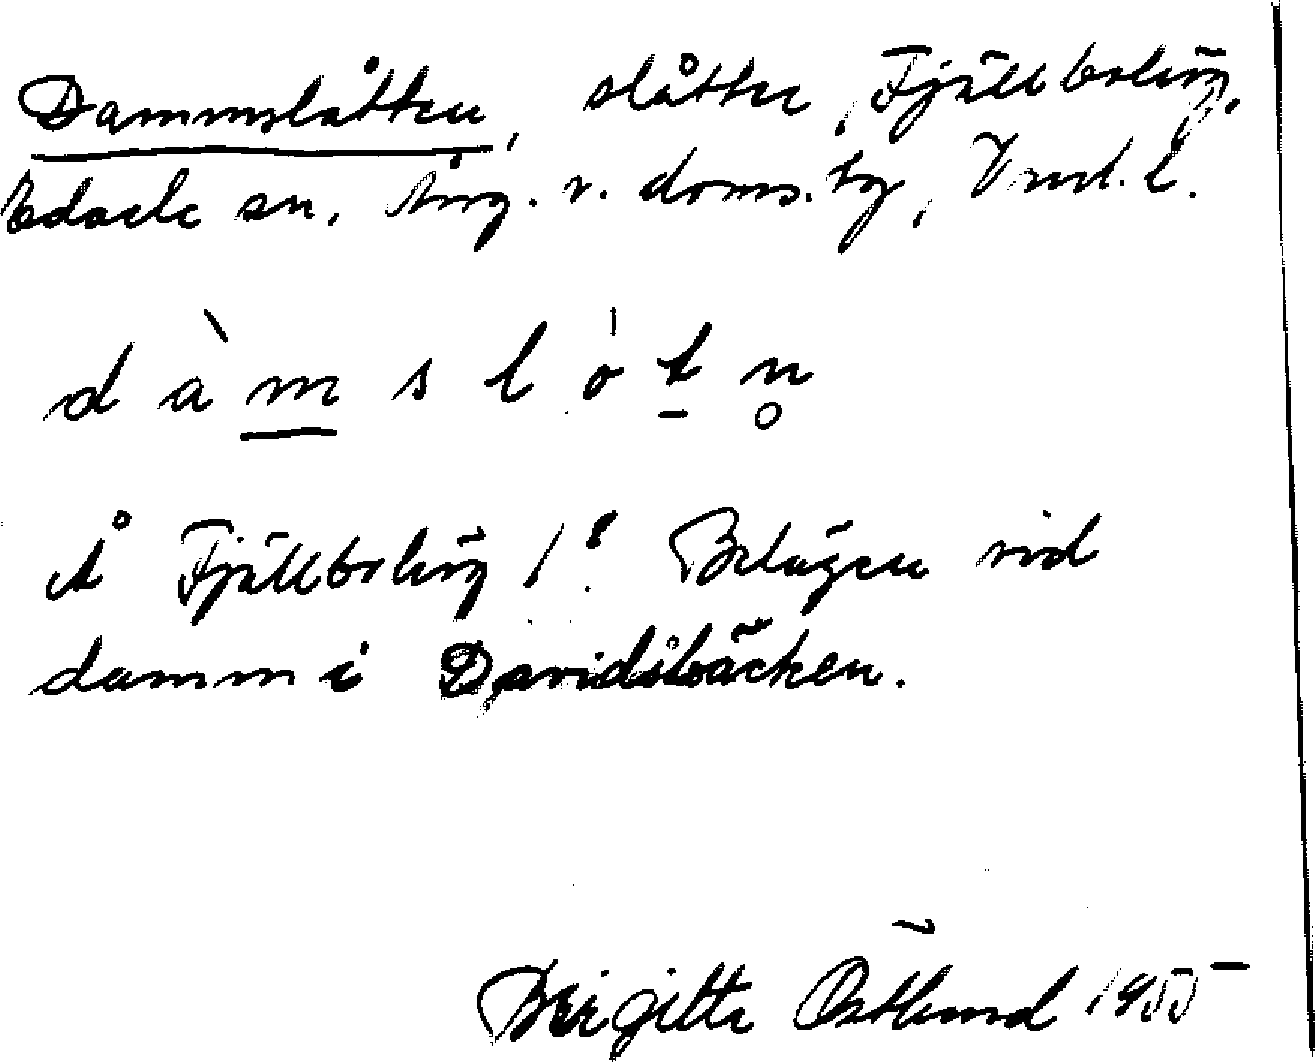 Dammslåtten, slåtter, Fjällboberg,
Edsele sn, Ång. v. doms. tg, Vnrl. l.
dàmslótn̥
Å Fjällboberg 1:8. Belägen vid
damm i Davidsbäcken.
Birgitta Östlund 1955